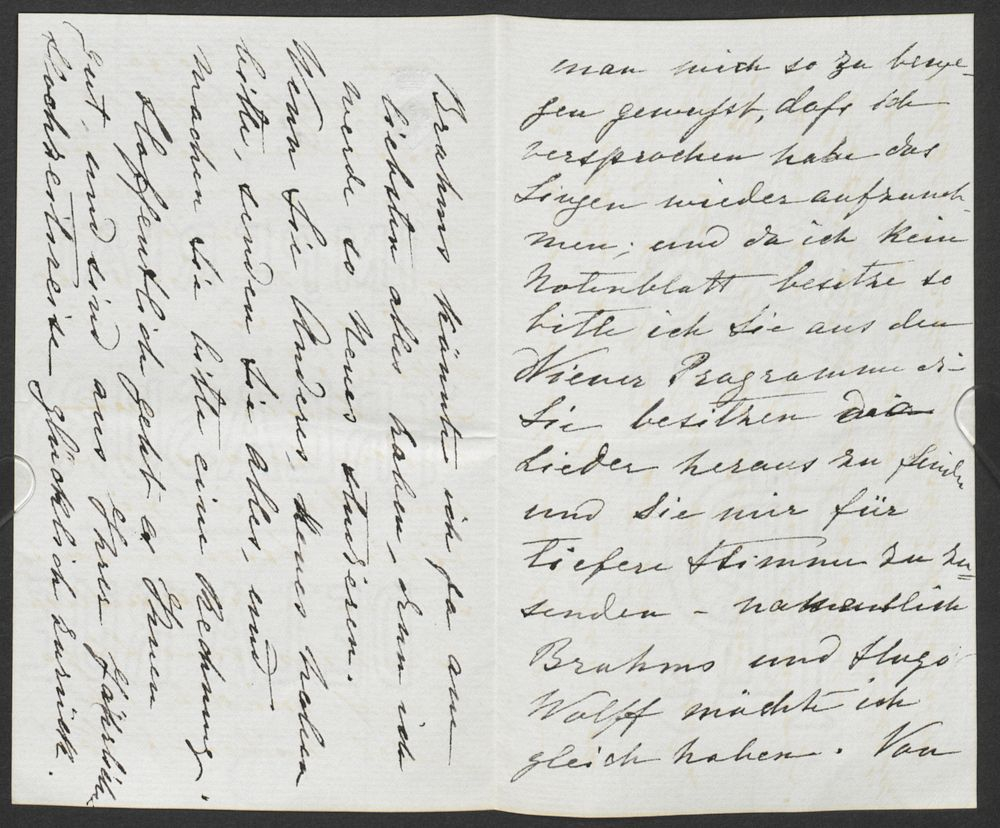 man mich so zu bewe-
gen gewußt, daß ich
versprochen habe das
Singen wieder aufzuneh-
men; und da ich kein
Notenblatt besitze so
bitte ich Sie aus den
Wiener Programmen die
Sie besitzen die
Lieder heraus zu finden
und Sie mir für
tiefere Stimme zu zu
senden – namentlich
Brahms und Hugo
Wolff möchte ich
gleich haben. Von
Brahms könnte ich ja am
liebsten alles haben, denn ich
werde so Neues studieren.
Wenn Sie Anderes, Neues haben
bitte, senden Sie alles, und
machen Sie bitte eine Rechnung.
Hoffentlich geht es Ihnen
gut, und sind aus Ihrer
Hochzeitsreise glücklich zurück.